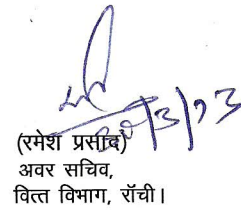 30/3/13
(रमेश प्रसाद)
अवर सचिव,
वित्त विभाग, रॉची।